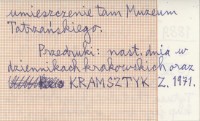 umieszczenie tam Muzeum
Tatrzańskiego.
Przedruki: nast. dnia w
dziennikach krakowskich oraz
KRAMSZTYK Z. 1971.